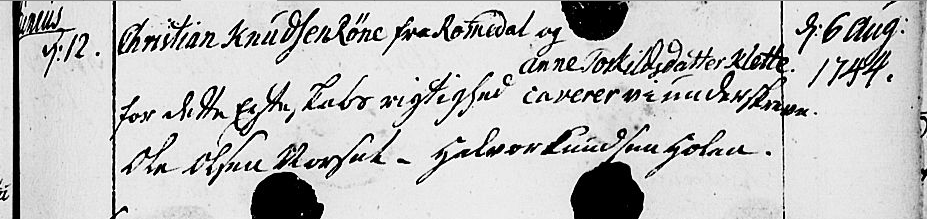 Junius
d: 12. Christian Knudsen Röne fra Romedal og d: 6 Aug:
Anne Torkildsdatter Klette. 1744.
for dette Egteskabs rigtighed caverer vi underskrevne.
Ole Olsen Norset - Halvor Knudsen Holen.